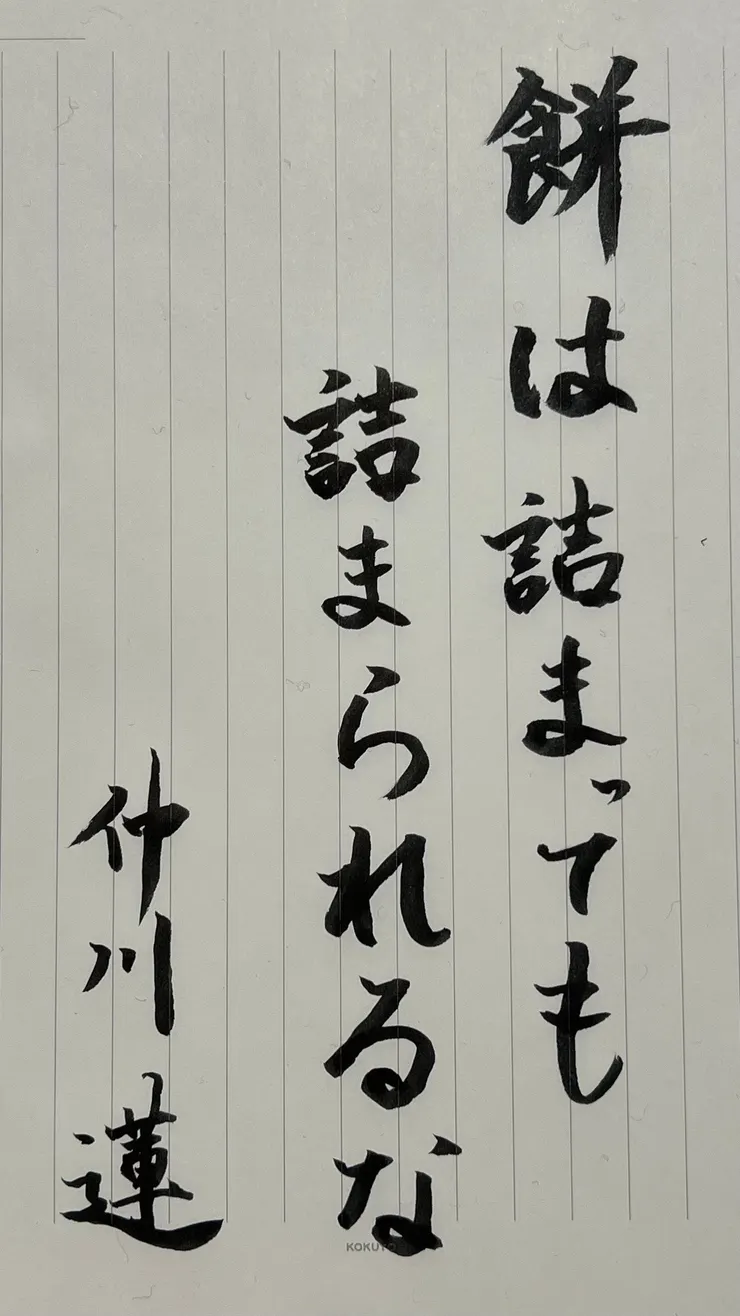 餅は詰まっても
詰まられるな
仲川蓮
KOKUYO